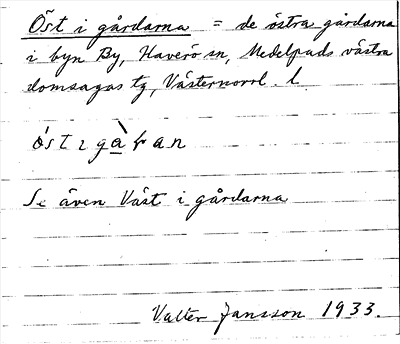 Öst i gårdarna = de östra gårdarna
i byn By, Haverö sn, Medelpads västra
domsagas tg, Västernorrl. l.
Se även Väst i gårdarna
Valter Jansson 1933.